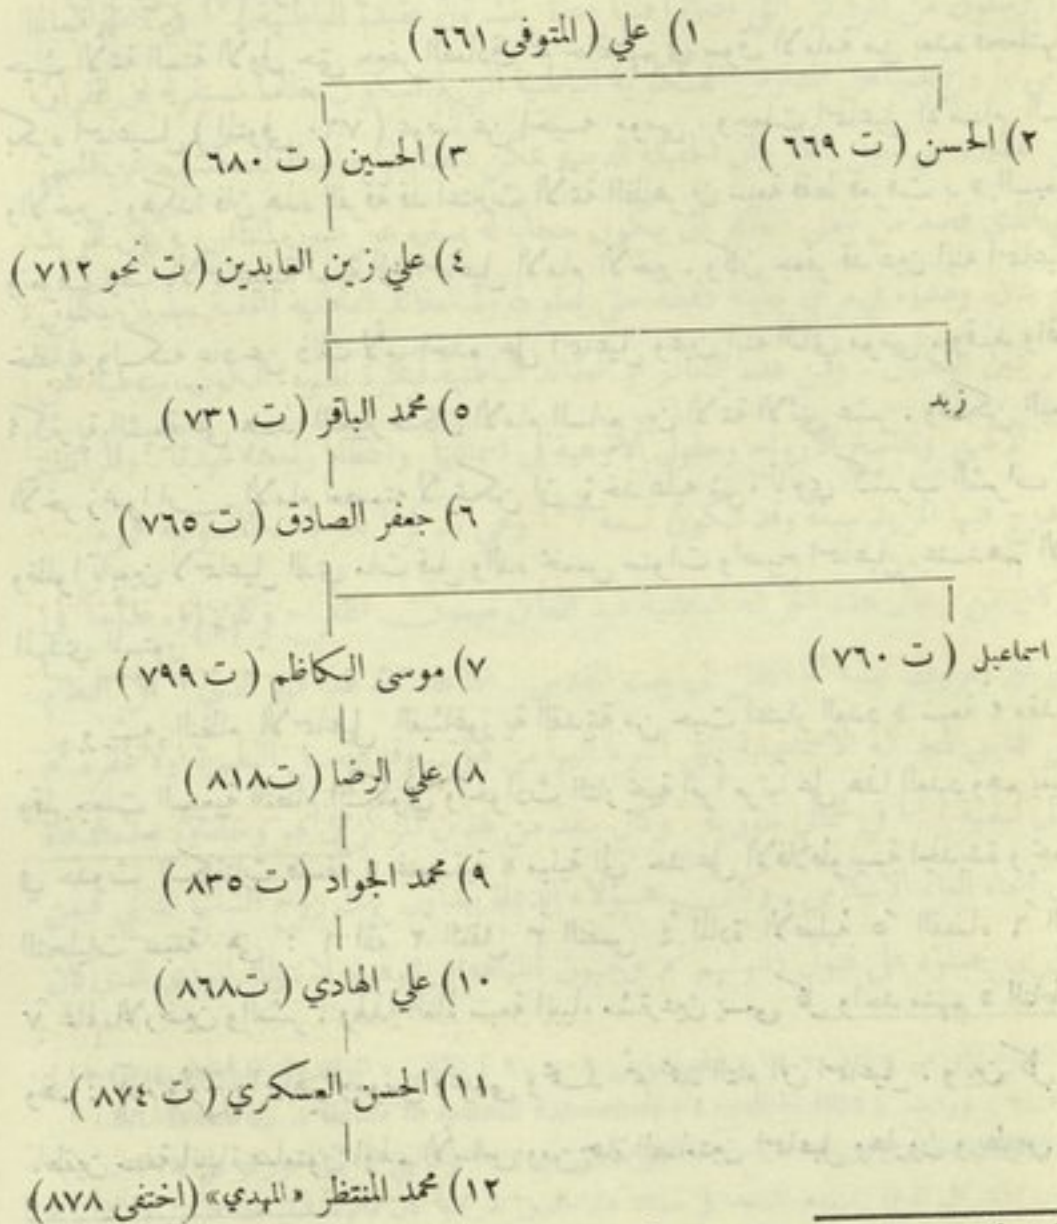 ١) علي ( المتوفى ٦٦١ )
٢) الحسن ( ت ٦٦٩ )
٣) الحسين ( ت ٦٨٠ )
٤) علي زين العابدين ( ت نحو ٧١٢ )
زيد
٥) محمد الباقر ( ت ٧٣١ )
٦) جعفر الصادق ( ت ٧٦٥ )
اسماعيل ( ت ٧٦٠ )
٧) موسى الكاظم ( ت ٧٩٩ )
٨) علي الرضا ( ت ٨١٨ )
٩) محمد الجواد ( ت ٨٣٥ )
١٠) علي الهادي ( ت ٨٦٨ )
١١) الحسن العسكري ( ت ٨٧٤ )
١٢) محمد المنتظر «المهدي» (اختفى ٨٧٨)